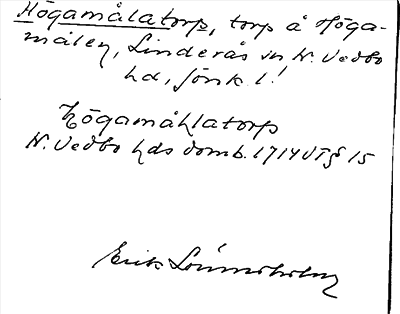 Högamålatorp, torp å Höga-
målen, Linderås sn N. Vedbo
hd, Jönk. l.
Högamåhlatorp
N. Vedbo hds domb. 1714 VT § 15
Erik